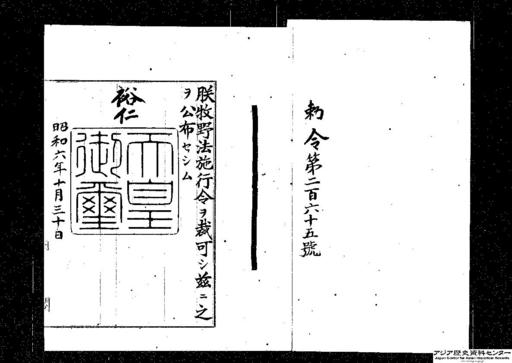 勅令第二百六十五號
朕牧野法施行令ヲ裁可シ茲ニ之
ヲ公布セシム
裕仁
天皇御璽
昭和六年十月三十日
アジア歴史資料センター
Japan Center for Asian Historical Records